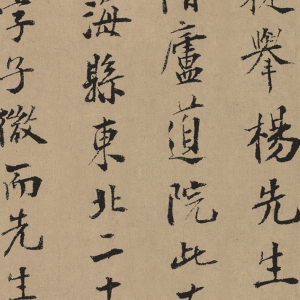 舉楊先生
廬道院此
海縣東北二十
字子微而先生